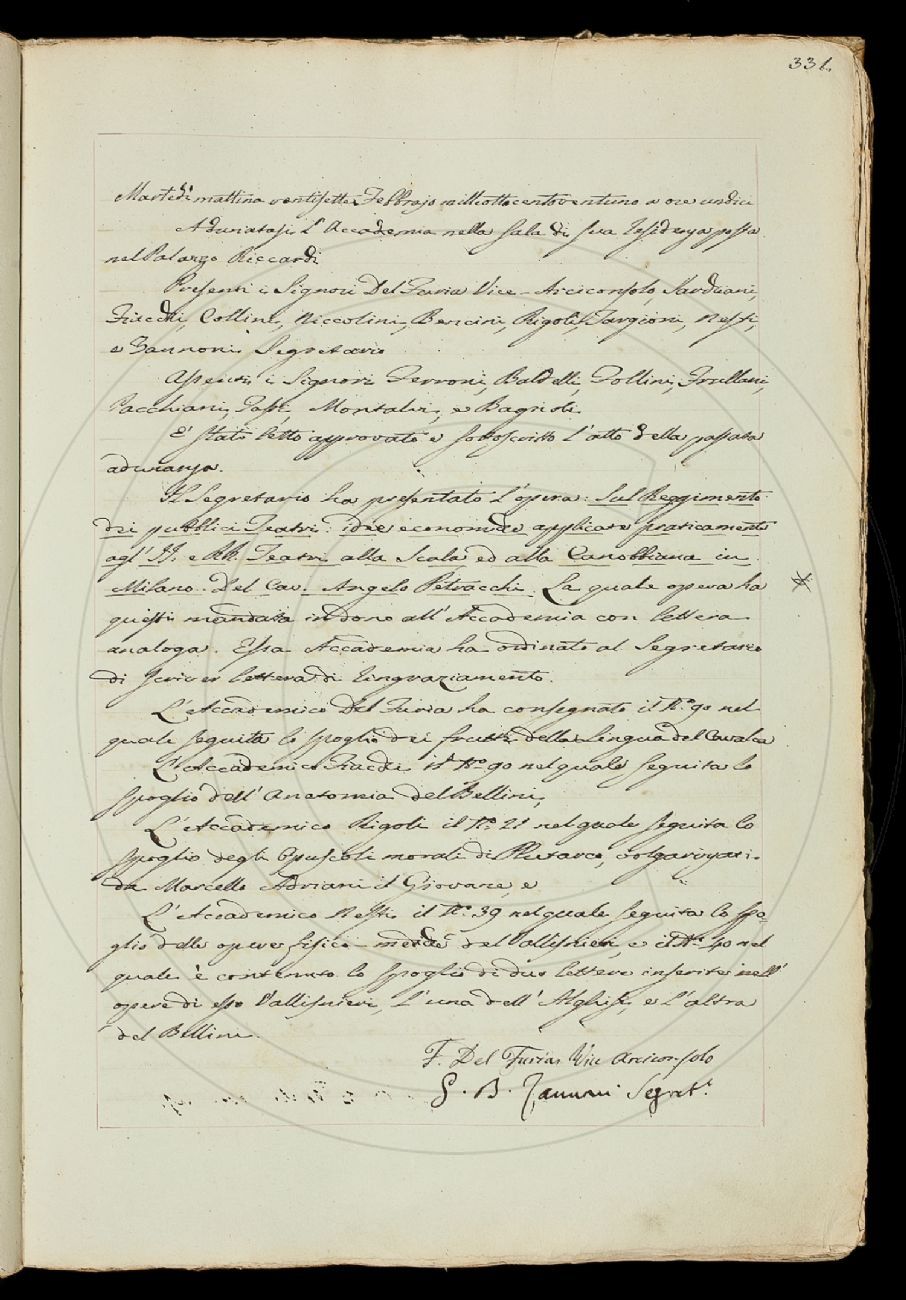 331.
Martedì mattina ventisette Febbrajo milleottocentoventuno a ore undici
Adunatasi l'Accademia nella sala di sua residenza posta
nel Palazzo Riccardi
Presenti i Signori Del Furia Vice-Arciconsolo, Sarchiani,
Fiacchi, Collini, Niccolini, Bencini, Rigoli, Targioni, Nesti,
e Zannoni Segretario
Assenti i Signori Ferroni, Baldelli, Pollini, Frullani,
Pacchiani, Montalvi, e Bagnoli.
È stato letto approvato e sottoscritto l'atto della passata
adunanza.
Il Segretario ha presentato l'opera: Sul Reggimento
dei pubblici Teatri: idee economiche applicate praticamente
agl' II. e RR. Teatri alla Scala ed alla Canobbiana in
Milano. Del Cav. Angelo Petracchi. La quale opera ha
questi mandata in dono all'Accademia con lettera
analoga. Essa Accademia ha ordinato al Segretario
di scriver lettera di ringraziamento.
L'Accademico Del Furia ha consegnato il N.° 90 nel
quale seguita lo spoglio dei frutti della Lingua del Cavalca
L'Accademico Fiacchi il N.° 90 nel quale seguita lo
spoglio dell' Anatomia del Bellini,
L'Accademico Rigoli il N.° 21 nel quale seguita lo
spoglio degli Opuscoli morali di Plutarco, volgarizzati
da Marcello Adriani il Giovane, e
L'Accademico Nesti il N.° 39 nel quale seguita lo spo=
glio delle opere fisico-mediche del Vallisnieri, e il N.° 40 nel
quale è contenuto lo spoglio di due lettere inserite nell'
opere di esso Vallisnieri, l'una dell' Alghisi, e l'altra
del Bellini.
F. Del Furia Vice Arciconsolo
G. B. Zannoni Segret.°